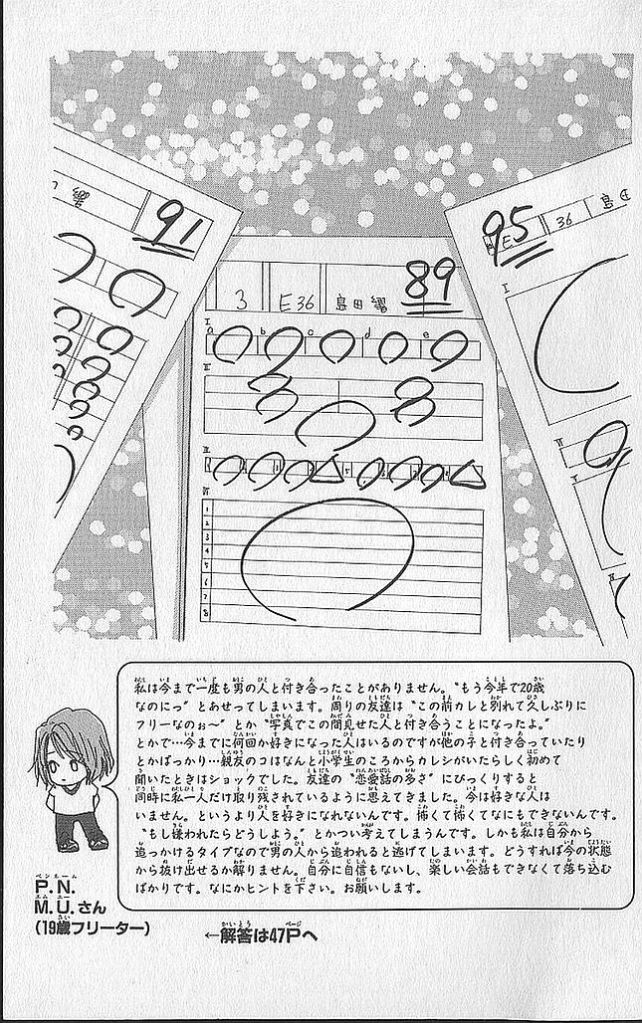 91
89
95
3
E36
島田
E
36
島田
I
a b c d e
II
III
IV
1
2
3
4
5
6
7
8
I
II
III
IV
私は今まで一度も男の人と付き合ったことがありません。〝もう今年で20歳
なのにっ〟とあせってしまいます。周りの友達は〝この前カレと別れて久しぶりに
フリーなのぉ〜〟とか〝写真でこの間見せた人と付き合うことになったよ。〟
とかで…今までに何回か好きになった人はいるのですが他の子と付き合っていたり
とかばっかり…親友のコはなんと小学生のころからカレシがいたらしく初めて
聞いたときはショックでした。友達の〝恋愛話の多さ〟にびっくりすると
同時に私一人だけ取り残されているように思えてきました。今は好きな人は
いません。というより人を好きになれないんです。怖くて怖くてなにもできないんです。
〝もし嫌われたらどうしよう。〟とかつい考えてしまうんです。しかも私は自分から
追っかけるタイプなので男の人から追われると逃げてしまいます。どうすれば今の状態
から抜け出せるか解りません。自分に自信もないし、楽しい会話もできなくて落ち込む
ばかりです。なにかヒントを下さい。お願いします。
P.N.
M.U.さん
(19歳フリーター)
←解答は47Pへ